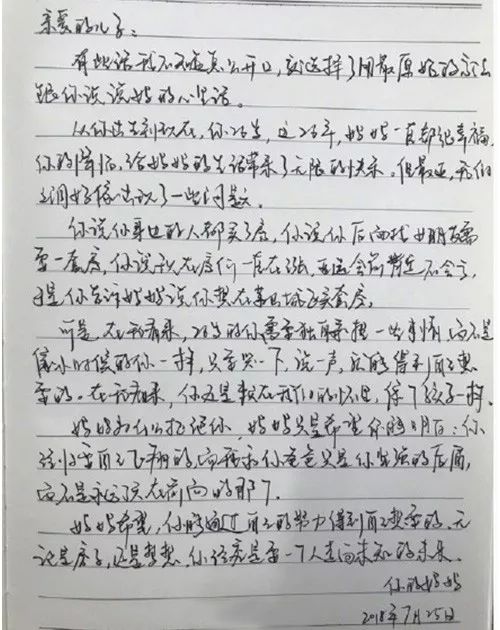 亲爱的儿子:
有些话我不知道怎么开口,就选择了用最原始的方法
跟你说说妈的心里话。
从你出生到现在,你26岁,这26年,妈妈一直都很幸福,
你的降临,给妈妈的生活带来了无限的快乐。但最近,我们
之间好像出现了一些问题。
你说你身边的人都买了房,你说你后面找女朋友需
要一套房,你说现在房价一直在涨,亚运会前肯定不会立
于是你告诉妈妈说你想在某城区买套房。
可是,在我看来,26岁的你需要独自承担一些事情,而不是
像小时候的你一样,只要哭一下,说一声,就能得到自己想
要的。在我看来,你还是躲在我们的怀里,像个孩子一样。
妈妈为什么拒绝你,妈妈只是希望你能明白:你
该归要自己飞翔的,而我和你爸爸只是你坚强的后盾,
而不是永远该在前面的那个。
妈妈希望,你能通过自己的努力得到自己想要的,无
论是房子,还是梦想,你终究是要一个人走向未知的未来。
你的妈妈
2018年7月25日